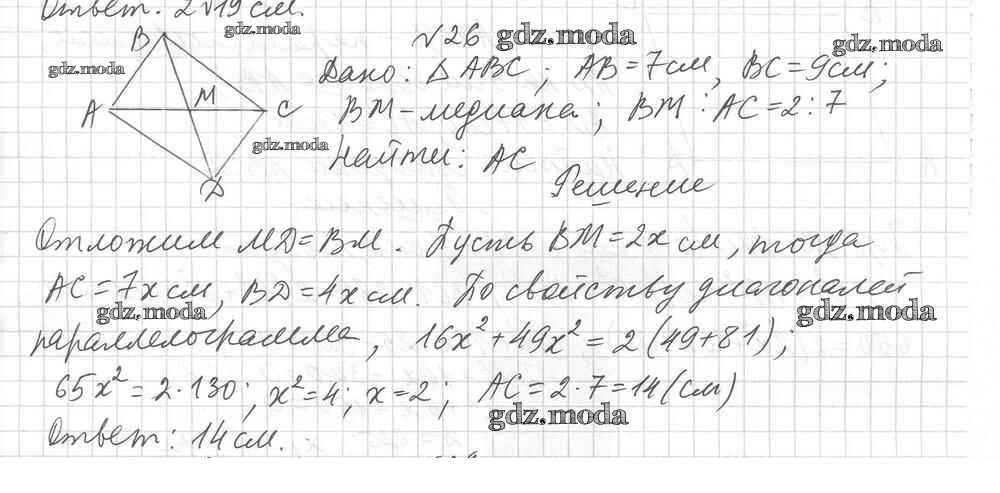 Ответ: 2√19 см.
gdz.moda
B
№26 gdz.moda
gdz.moda
gdz.moda
Дано: Δ ABC; AB=7см, BC=9см;
A
M
C
BM-медиана; BM:AC=2:7
gdz.moda
Найти: AC
D
Решение
Отложим MD=BM. Пусть BM=2x см, тогда
AC=7x см, BD=4x см. По свойству диагоналей
gdz.moda
gdz.moda
параллелограмма, 16x²+49x²=2(49+81);
65x²=2·130; x²=4; x=2; AC=2·7=14(см)
gdz.moda
Ответ: 14 см.